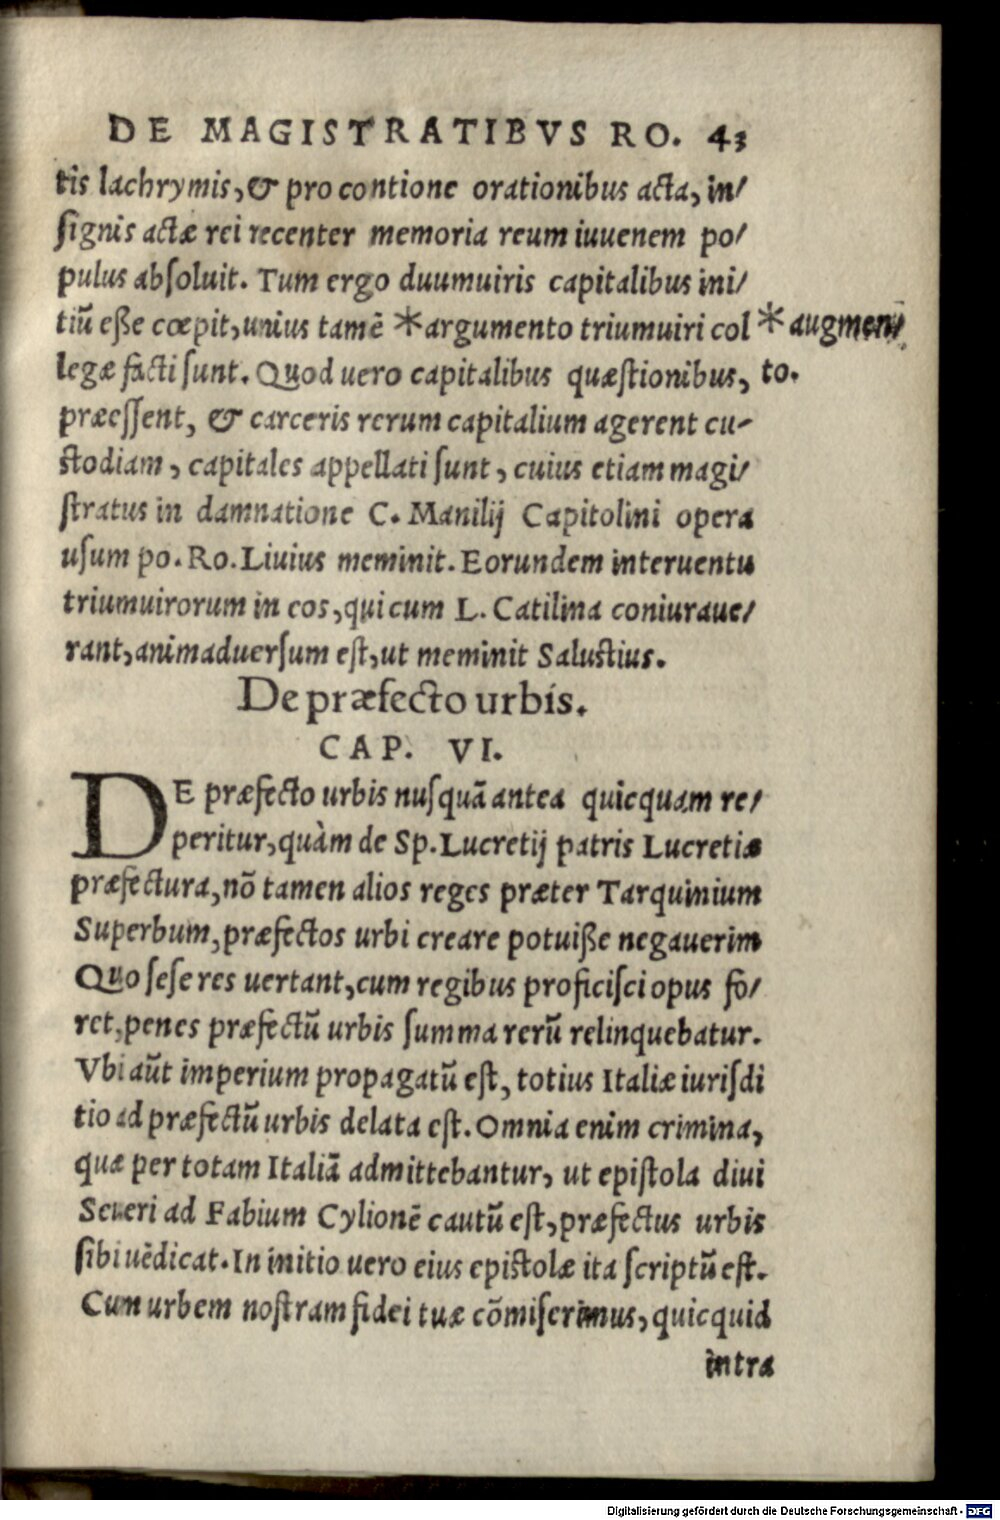 DE MAGISTRATIBVS RO. 43
tis lachrymis, & pro contione orationibus acta, in/
signis actæ rei recenter memoria reum iuuenem po/
pulus absoluit. Tum ergo duumuiris capitalibus ini/
tiũ eße cœpit, unius tamẽ *argumento triumuiri col
*augmen/
legæ facti sunt. Quod uero capitalibus quæstionibus,
to.
præessent, & carceris rerum capitalium agerent cu-
stodiam, capitales appellati sunt, cuius etiam magi/
stratus in damnatione C. Manilij Capitolini opera
usum po. Ro. Liuius meminit. Eorundem interuentu
triumuirorum in eos, qui cum L. Catilina coniuraue/
rant, animaduersum est, ut meminit Salustius.
De præfecto urbis.
CAP. VI.
DE præfecto urbis nusquã antea quicquam re/
peritur, quàm de Sp. Lucretij patris Lucretiæ
præfectura, nõ tamen alios reges præter Tarquinium
Superbum, præfectos urbi creare potuiße negauerim
Quo sese res uertant, cum regibus proficisci opus fo/
ret, penes præfectũ urbis summa rerũ relinquebatur.
Vbi aũt imperium propagatũ est, totius Italiæ iurisdi
tio ad præfectũ urbis delata est. Omnia enim crimina,
quæ per totam Italiã admittebantur, ut epistola diui
Seueri ad Fabium Cylionẽ cautũ est, præfectus urbis
sibi uẽdicat. In initio uero eius epistolæ ita scriptũ est.
Cum urbem nostram fidei tuæ cõmiserimus, quicquid
intra
Digitalisierung gefördert durch die Deutsche Forschungsgemeinschaft - DFG